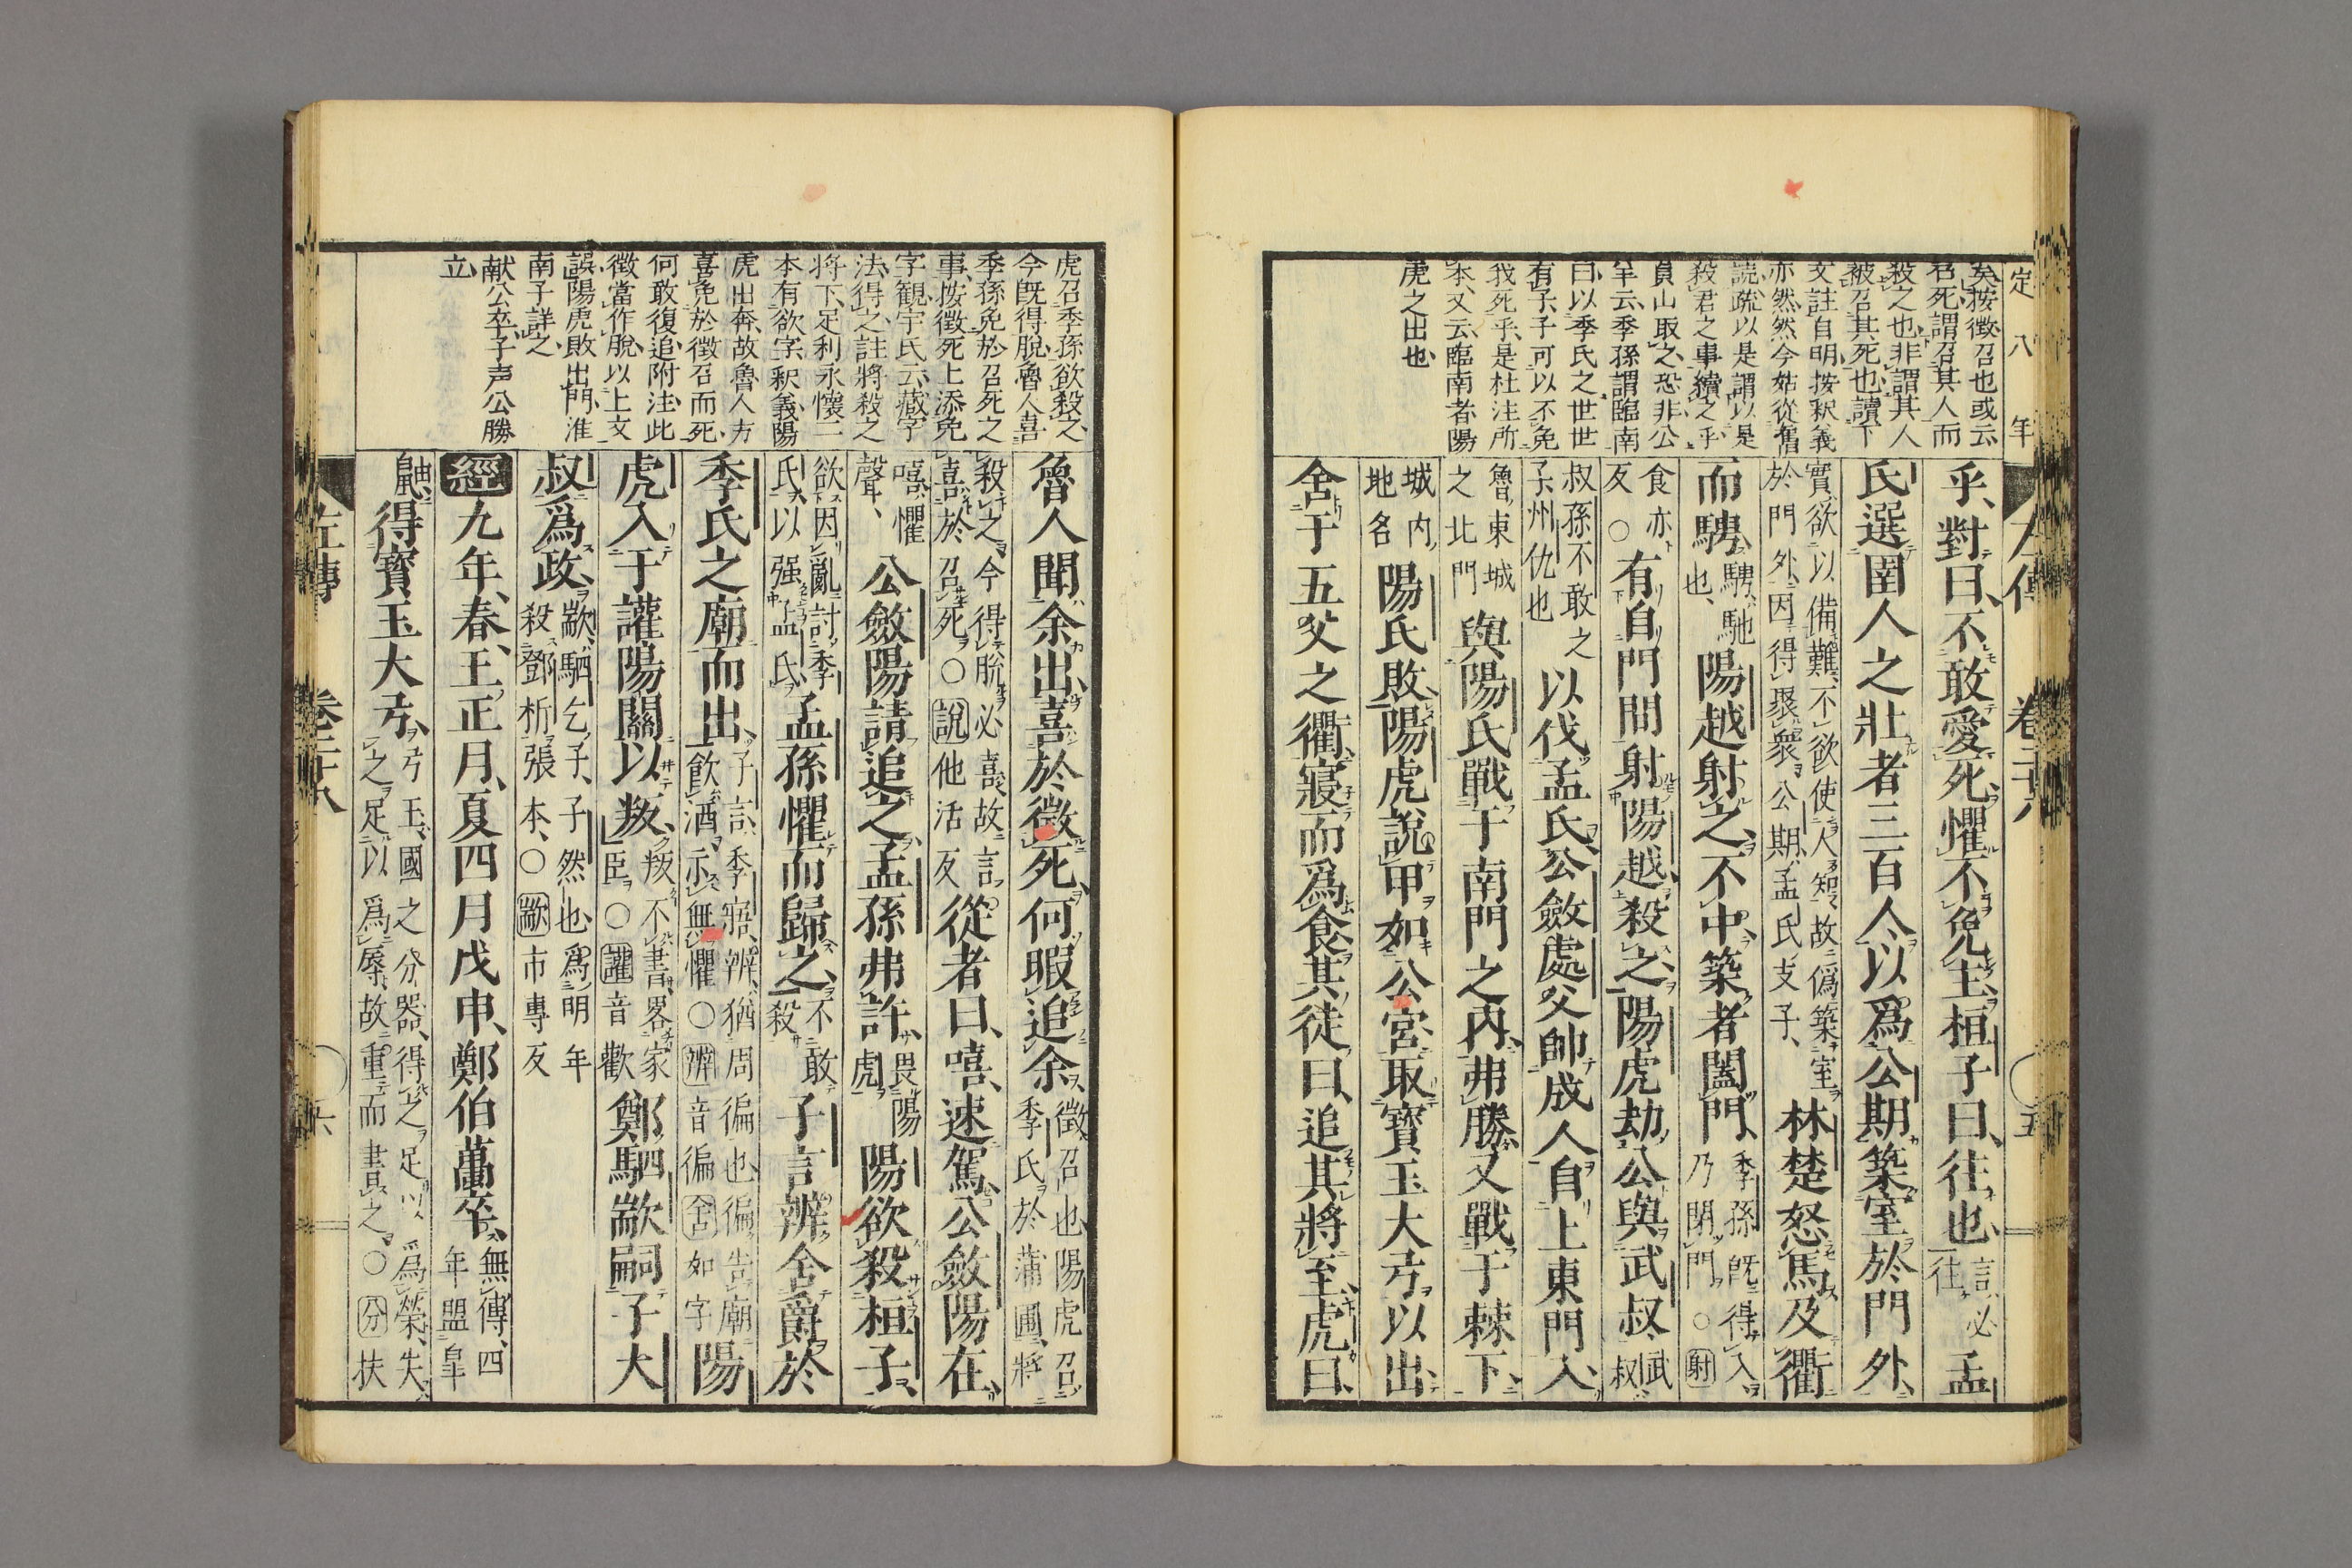 定八年
矣按徴召也或云
召死謂召其人而
殺之也非謂其人
被召其死也讀下
文註自明按釈義
亦然然今姑從舊
讀疏以是謂以是
殺君之事續之乎
負山取之恐非公
羊云季孫謂臨南
曰以季氏之世世
有子子可以不免
我死乎是杜注所
本又云臨南者陽
虎之出也
乎對曰不敢愛死懼不免主桓子曰往也言必往孟
氏選圉人之壯者三百人以爲公期築室於門外
實欲以備難不欲使人知故僞築室
於門外因得聚衆公期孟氏支子林楚怒馬及衢
而騁騁馳也陽越射之不中築者闔門季孫既得入乃閉門○射
食亦反○有自門間射陽越殺之陽虎劫公與武叔武叔
叔孫不敢之子州仇也以伐孟氏公斂處父帥成人自上東門入
魯東城之北門與陽氏戰于南門之內弗勝又戰于棘下
城内地名陽氏敗陽虎說甲如公宮取寶玉大弓以出
舍于五父之衢寢而爲食其徒曰追其將至虎曰
左傳 卷二十八 五
虎召季孫欲殺之
今既得脫魯人喜
季孫免於召死之
事按徴死上添免
字観宇氏云蔵字
法得之註將殺之
將下足利永懷二
本有欲字釈義陽
虎出奔故魯人方
喜免於徴召而死
何敢復追附注此
徴當作脫以上文
誤陽虎敗出門淮
南子詳之
献公卒子声公勝
立
魯人聞余出喜於徵死何暇追余徵召也陽虎召季氏於蒲圃將
殺之今得脫必喜故言喜於召死○說他活反從者曰嘻速駕公斂陽在
嘻懼聲公斂陽請追之孟孫弗許畏陽虎陽欲殺桓子
欲因亂討季氏以强孟氏孟孫懼而歸之不敢殺子言辨舍爵於
季氏之廟而出子言季寤辨猶周徧也徧告廟飮酒示無懼○辨音徧舍如字陽
虎入于讙陽關以叛叛不書畧家臣○讙音歡鄭駟歂嗣子大
叔爲政歂駟乞子子然也爲明年殺鄧析張本○歂市專反
經九年春王正月夏四月戊申鄭伯蠆卒無傳四年盟皐
鼬得寶玉大弓弓玉國之分器得之足以爲榮失之足以爲辱故重而書之○分扶
左傳 卷二十八 六